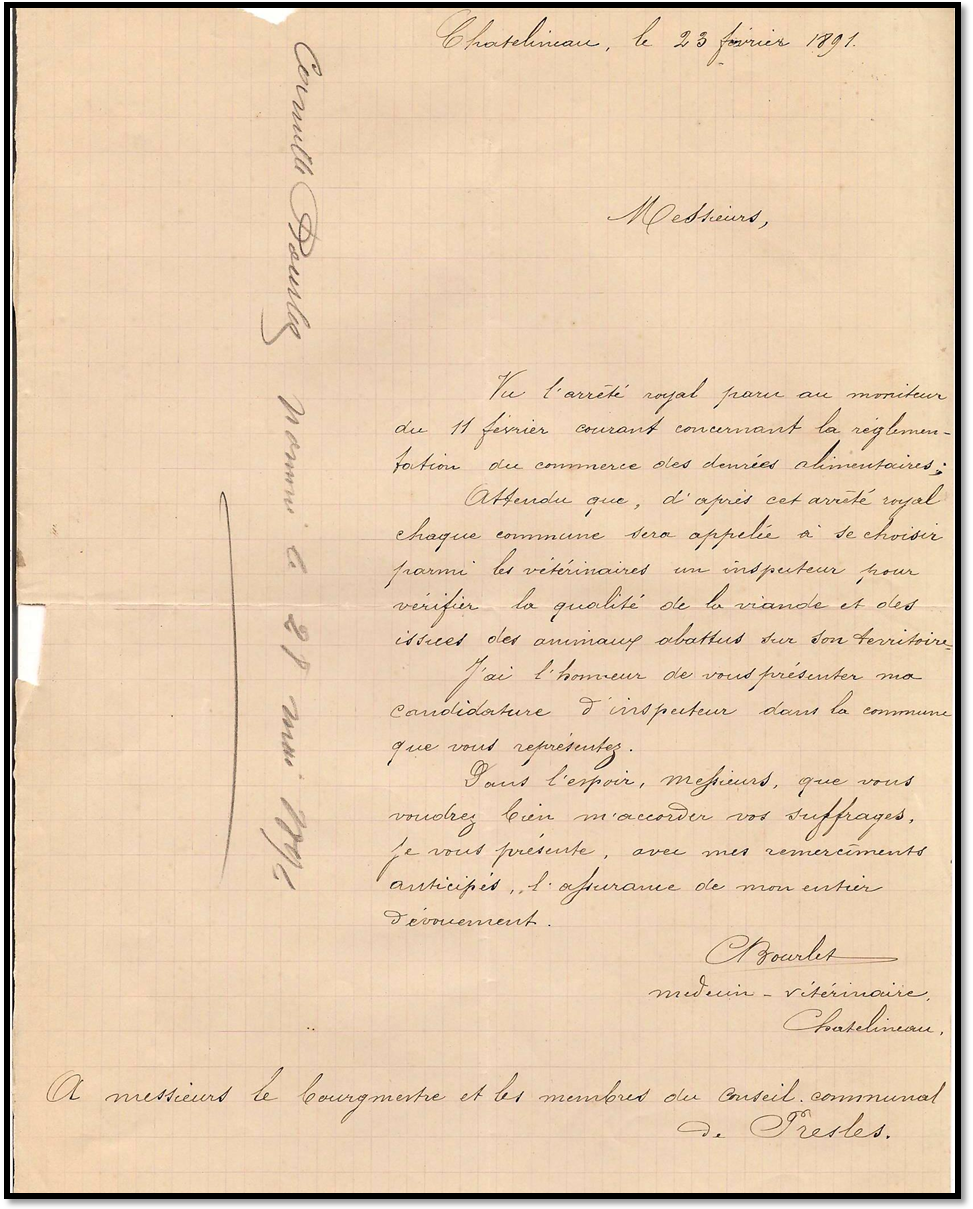 Chatelineau, le 23 février 1891.
Messieurs,
Vu l'arrêté royal paru au moniteur
du 11 février courant concernant la réglemen-
tation du commerce des denrées alimentaires;
Attendu que, d'après cet arrêté royal
chaque commune sera appelée à se choisir
parmi les vétérinaires un inspecteur pour
vérifier la qualité de la viande et des
issues des animaux abattus sur son territoire
J'ai l'honneur de vous présenter ma
candidature d'inspecteur dans la commune
que vous représentez.
Dans l'espoir, messieurs, que vous
voudrez bien m'accorder vos suffrages,
je vous présente, avec mes remerciments
anticipés, l'assurance de mon entier
dévouement.
CBourlet
medecin - vétérinaire,
Chatelineau.
A messieurs le bourgmestre et les membres du conseil communal
de Presles.
Camille nommé le mai